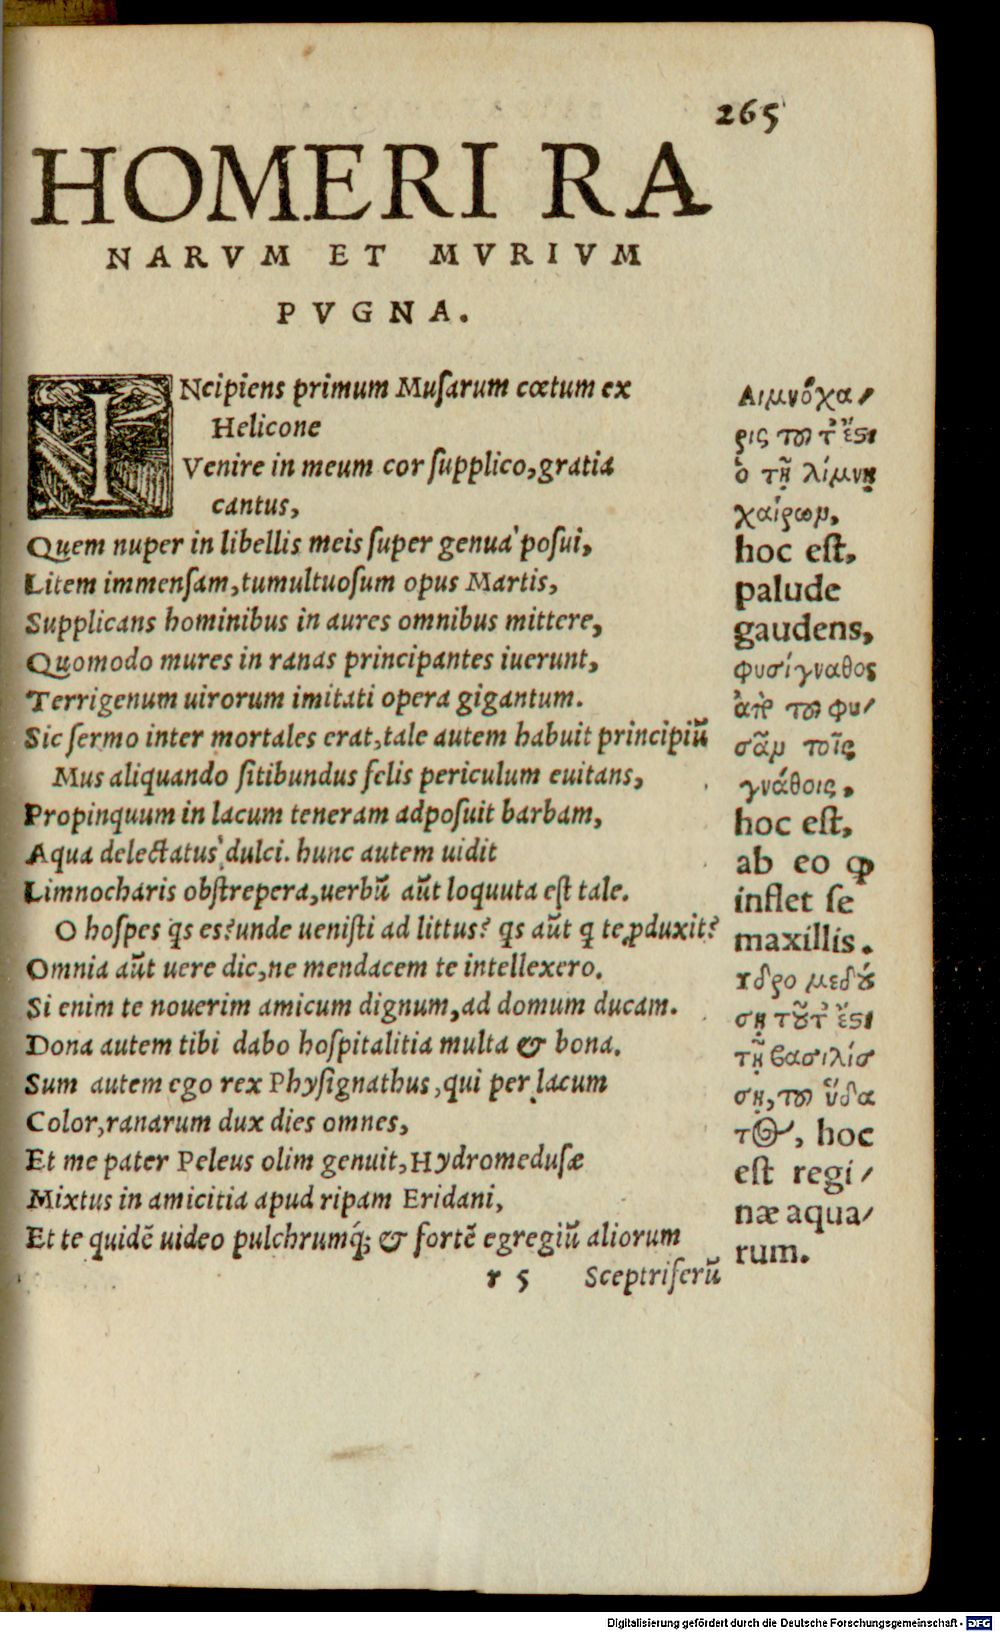 265
HOMERI RA
NARVM ET MVRIVM
PVGNA.
INcipiens primum Musarum cœtum ex
Helicone
Venire in meum cor supplico, gratia
cantus,
Quem nuper in libellis meis super genua posui,
Litem immensam, tumultuosum opus Martis,
Supplicans hominibus in aures omnibus mittere,
Quomodo mures in ranas principantes iuerunt,
Terrigenum uirorum imitati opera gigantum.
Sic sermo inter mortales erat, tale autem habuit principiũ
Mus aliquando sitibundus felis periculum euitans,
Propinquum in lacum teneram adposuit barbam,
Aqua delectatus dulci. hunc autem uidit
Limnocharis obstrepera, uerbũ aũt loquuta est tale.
O hospes qs es? unde uenisti ad littus? qs aũt q te ꝑduxit?
Omnia aũt uere dic, ne mendacem te intellexero.
Si enim te nouerim amicum dignum, ad domum ducam.
Dona autem tibi dabo hospitalitia multa & bona.
Sum autem ego rex Physignathus, qui per lacum
Color, ranarum dux dies omnes,
Et me pater Peleus olim genuit, Hydromedusæ
Mixtus in amicitia apud ripam Eridani,
Et te quidẽ uideo pulchrumq́; & fortẽ egregiũ aliorum
r 5 Sceptriferũ
Λιμνόχα/
ρις του τ᾽ ἔϛι
ὁ τῇ λίμνῃ
χαίρωμ,
hoc est,
palude
gaudens,
φυσίγναθος
ἀπὸ του φυ/
σᾶμ τοῖς
γνάθοις,
hoc est,
ab eo ꝙ
inflet se
maxillis.
Υδρο μεδού
σῃ τοῦτ᾽ ἔϛι
τῇ βασιλίσ
σῃ, του ὕδα
τος, hoc
est regi/
næ aqua/
rum.
Digitalisierung gefördert durch die Deutsche Forschungsgemeinschaft - DFG